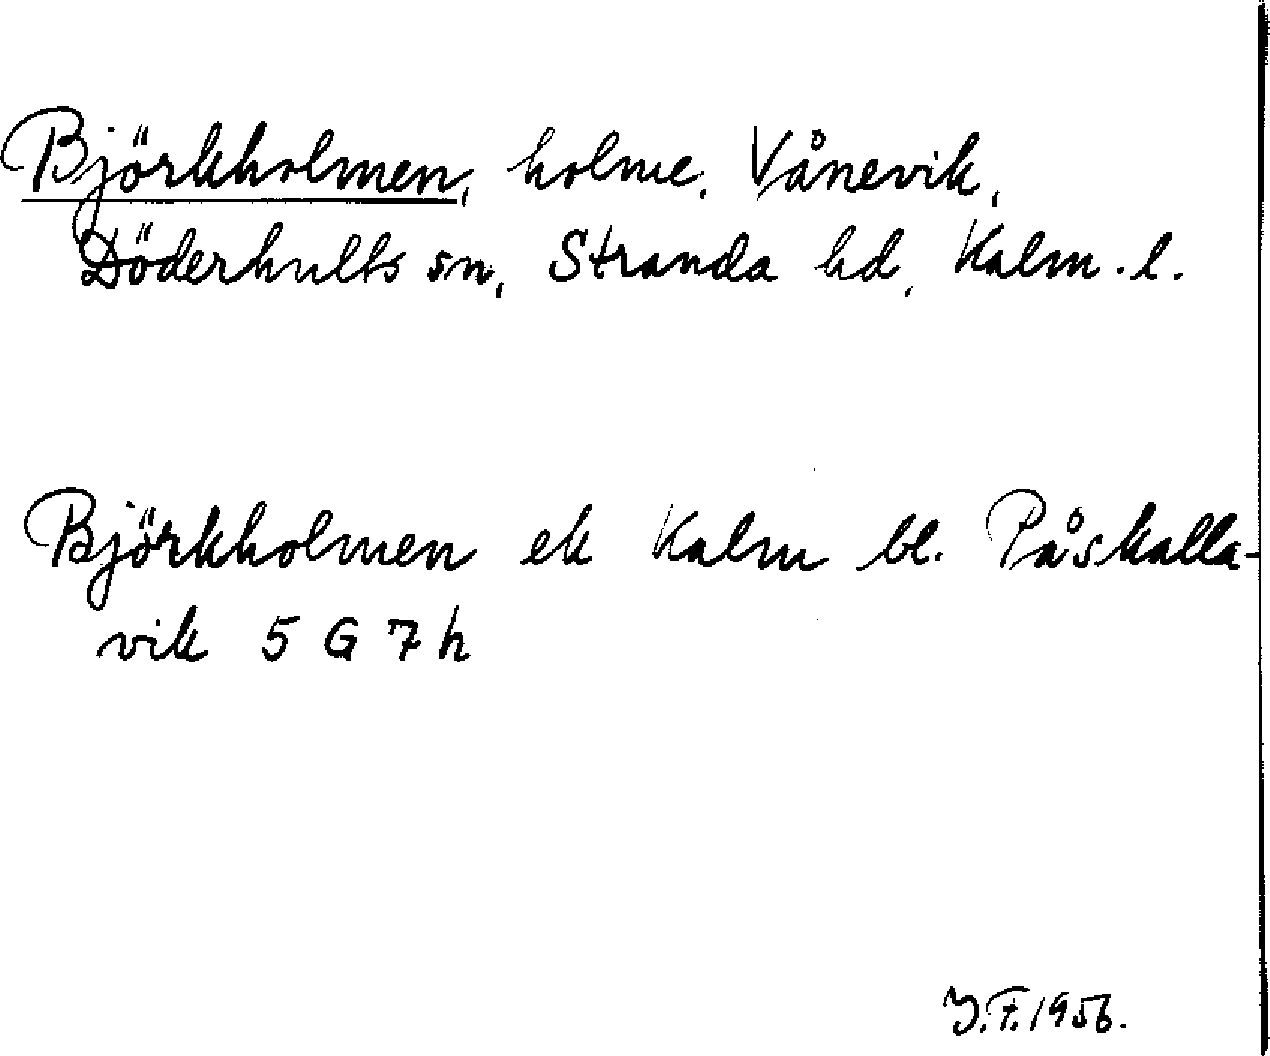 Björkholmen, holme, Vånevik,
Döderhults sn, Stranda hd, Kalm. l.
Björkholmen ek Kalm bl. Påskalla-
vik 5 G 7 h
Y.F. 1956.